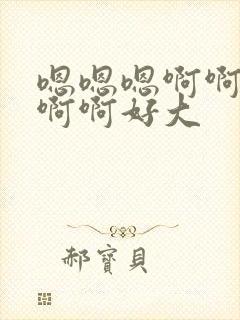 嗯嗯嗯啊啊
啊啊好大
郝寶貝